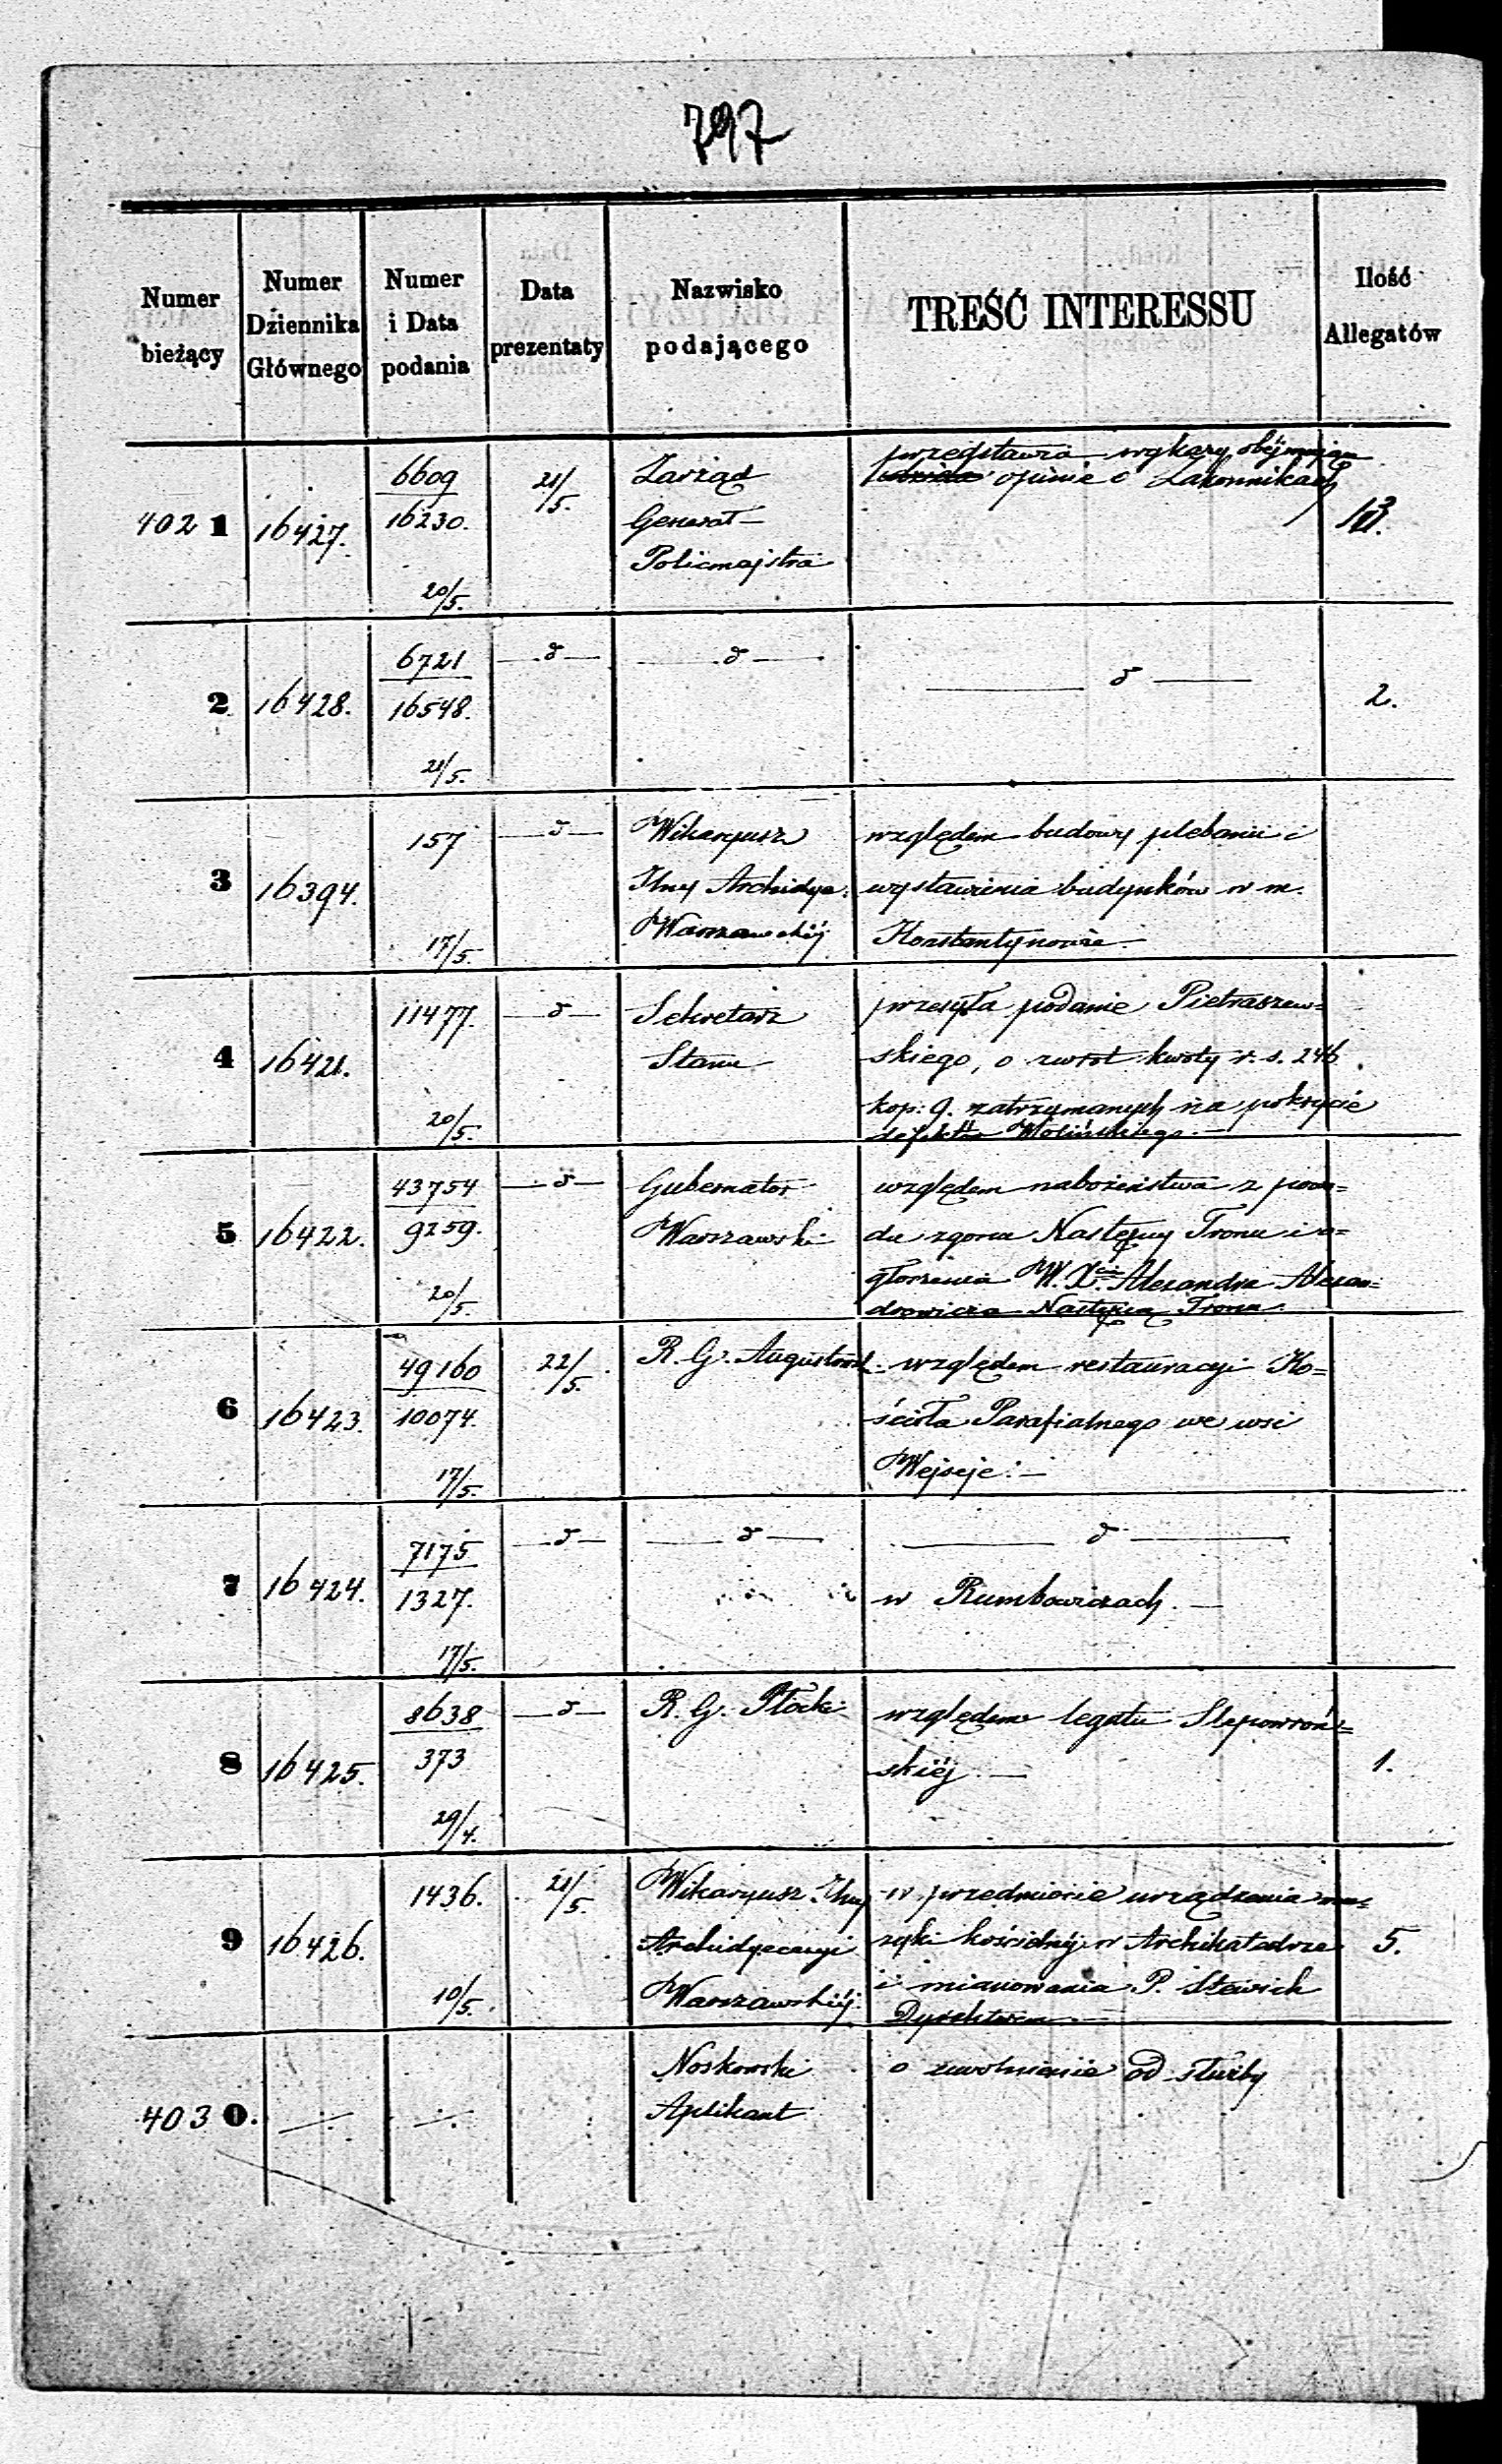 797
Numer bieżący
Numer Dziennika Głównego
Numer i Data podania
Data prezentaty
Nazwisko podającego
TREŚĆ INTERESSU
Ilość Allegatów
4021 16427. 6609 / 16230. 20/5. 21/5. Zarząd
Generał-
Policmajstra
przedstawia wykazy obejmując
opinie o Zakonnikach
2 16428. 6721 / 16548. 21/5. —d— —d— —d— 2.
3 16394. 157 17/5. —d— Wikaryusz
Jlny Archidye:
Warszawskiéj
względem budowy plebanii i
wystawienia budynków w m.
Konstantynowie.—
4 16421. 11477. 20/5. —d— Sekretarz
Stanu
przesyła podanie Pietraszew=
skiego, o zwrot kwoty r. s. 246
kop: 9. zatrzymanych na pokrycie
defektu Wolińskiego.—
5 16422. 43754 / 9259. 20/5. —d— Gubernator
Warszawski
względem nabożeństwa z powo=
du zgonu Następcy Tronu i o=
głoszenia W. X. Alexandra Alexan=
drowicza Następcą Tronu.
6 16423. 49160 / 10074. 17/5. 22/5. R. G. Augustowsk:
względem restauracyi Ko=
ścioła Parafialnego we wsi
Wejseje.—
7 16424. 7175 / 1327. 17/5. —d— —d— —d—
w Rumbowiczach.—
8 16425. 8638 / 373 29/4. —d— R. G. Płocki
względem legatu Slepowroń=
skiéj.— 1.
9 16426. 1436. 10/5. 21/5. Wikaryusz Jlny
Archidyecezyi
Warszawskiéj.
w przedmiocie urządzenia mu=
zyki kościelnéj w Archikatedrze 5.
i mianowania P. Stewich
Dyrektorem.—
4030. —/. —/. Noskowski
Aplikant
o uwolnienie od służby